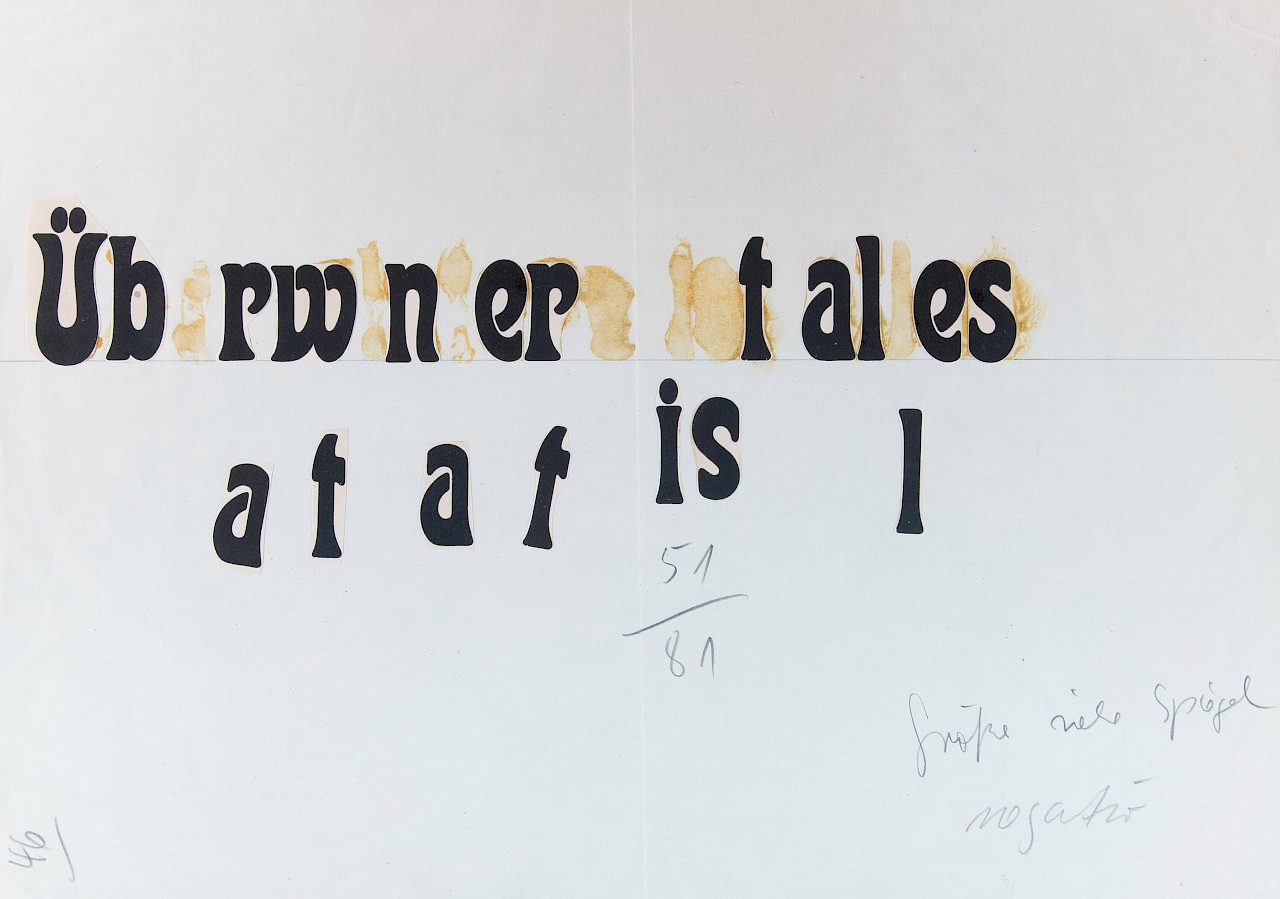 Üb rwn er t al es
a t a t is l
51
81
Größe siehe Spiegel
negativ
94